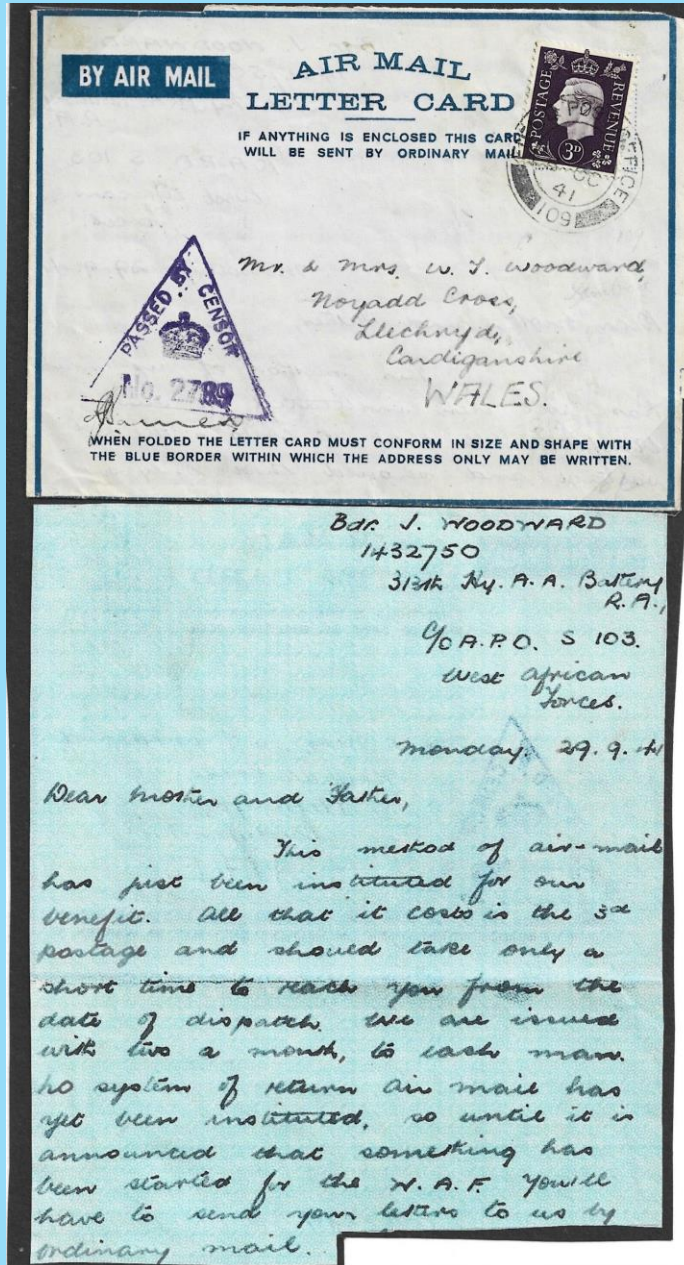 BY AIR MAIL
AIR MAIL
LETTER CARD
IF ANYTHING IS ENCLOSED THIS CARD
WILL BE SENT BY ORDINARY MAIL
POSTAGE
REVENUE
3D
OC
41
109
PASSED BY CENSOR
No. 2789
Mr. & Mrs. W. J. Woodward,
Noyadd Cross,
Llechryd,
Cardiganshire
WALES.
WHEN FOLDED THE LETTER CARD MUST CONFORM IN SIZE AND SHAPE WITH
THE BLUE BORDER WITHIN WHICH THE ADDRESS ONLY MAY BE WRITTEN.
Bdr. J. WOODWARD
1432750
313th Hy. A. A. Battery
R.A.,
C/O A.P.O. S 103.
West African
Forces.
Monday. 29.9.41
Dear Mother and Father,
This method of air-mail
has just been instituted for our
benefit. All that it costs is the 3d
postage and should take only a
short time to reach you from the
date of dispatch. We are issued
with two a month, to each man.
No system of return air mail has
yet been instituted, so until it is
announced that something has
been started for the W.A.F. you'll
have to send your letters to us by
ordinary mail.